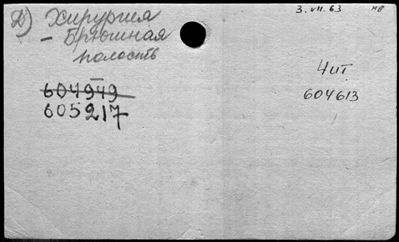 3.VII.63 МВ
Д) Хирургия
- Брюшная
полость
Чит
604949
604613
605217